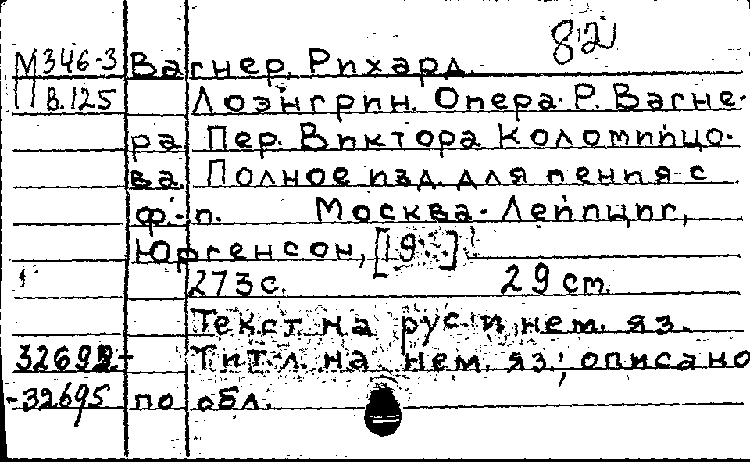 82
М346-3 Вагнер, Рихард.
П в.125 Лоэнгрин. Опера Р. Вагне-
ра. Пер. Виктора Коломийцо-
ва. Полное изд. для пения с
ф.-п. Москва-Лейпциг,
Юргенсон, [19
273 с. 29 cm.
Текст на рус. и нем. яз.
Тит. л. на нем. яз.; описано
-32695 по обл.